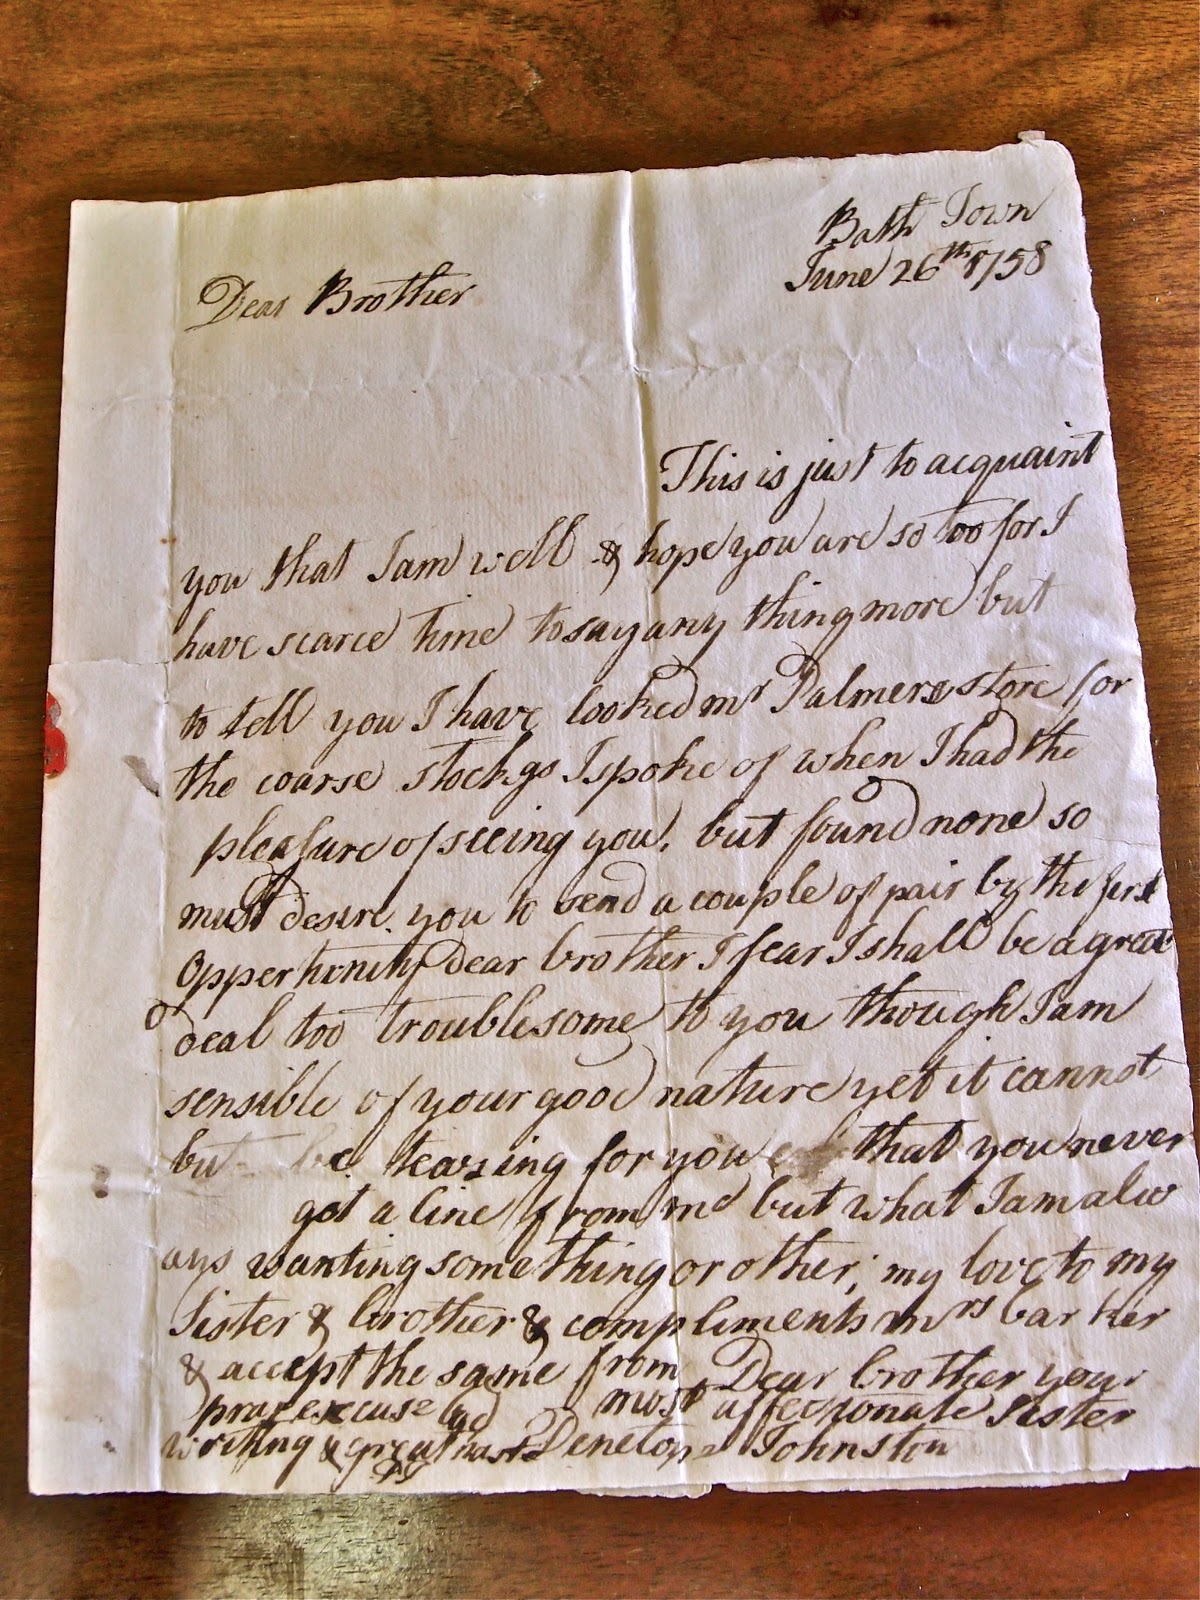 Bath Town
June 26th 1758
Dear Brother
This is just to acquaint
you that I am well & hope you are so too for I
have scarce time to say any thing more but
to tell you I have looked mr Palmers store for
the coarse stockgs I spoke of when I had the
pleasure of seeing you, but found none so
must desire you to send a couple of pair by the first
oppertunity dear brother I fear I shall be a great
deal too troublesome to you though I am
sensible of your good nature yet it cannot
but be teazing for you that you never
got a line from me but what I am alw
ays wanting something or other; my love to my
Sister & brother & compliments mrs barker
& accept the same from Dear brother your
pray excuse bad most affectionate Sister
writing & great haste Penelope Johnston
PJ